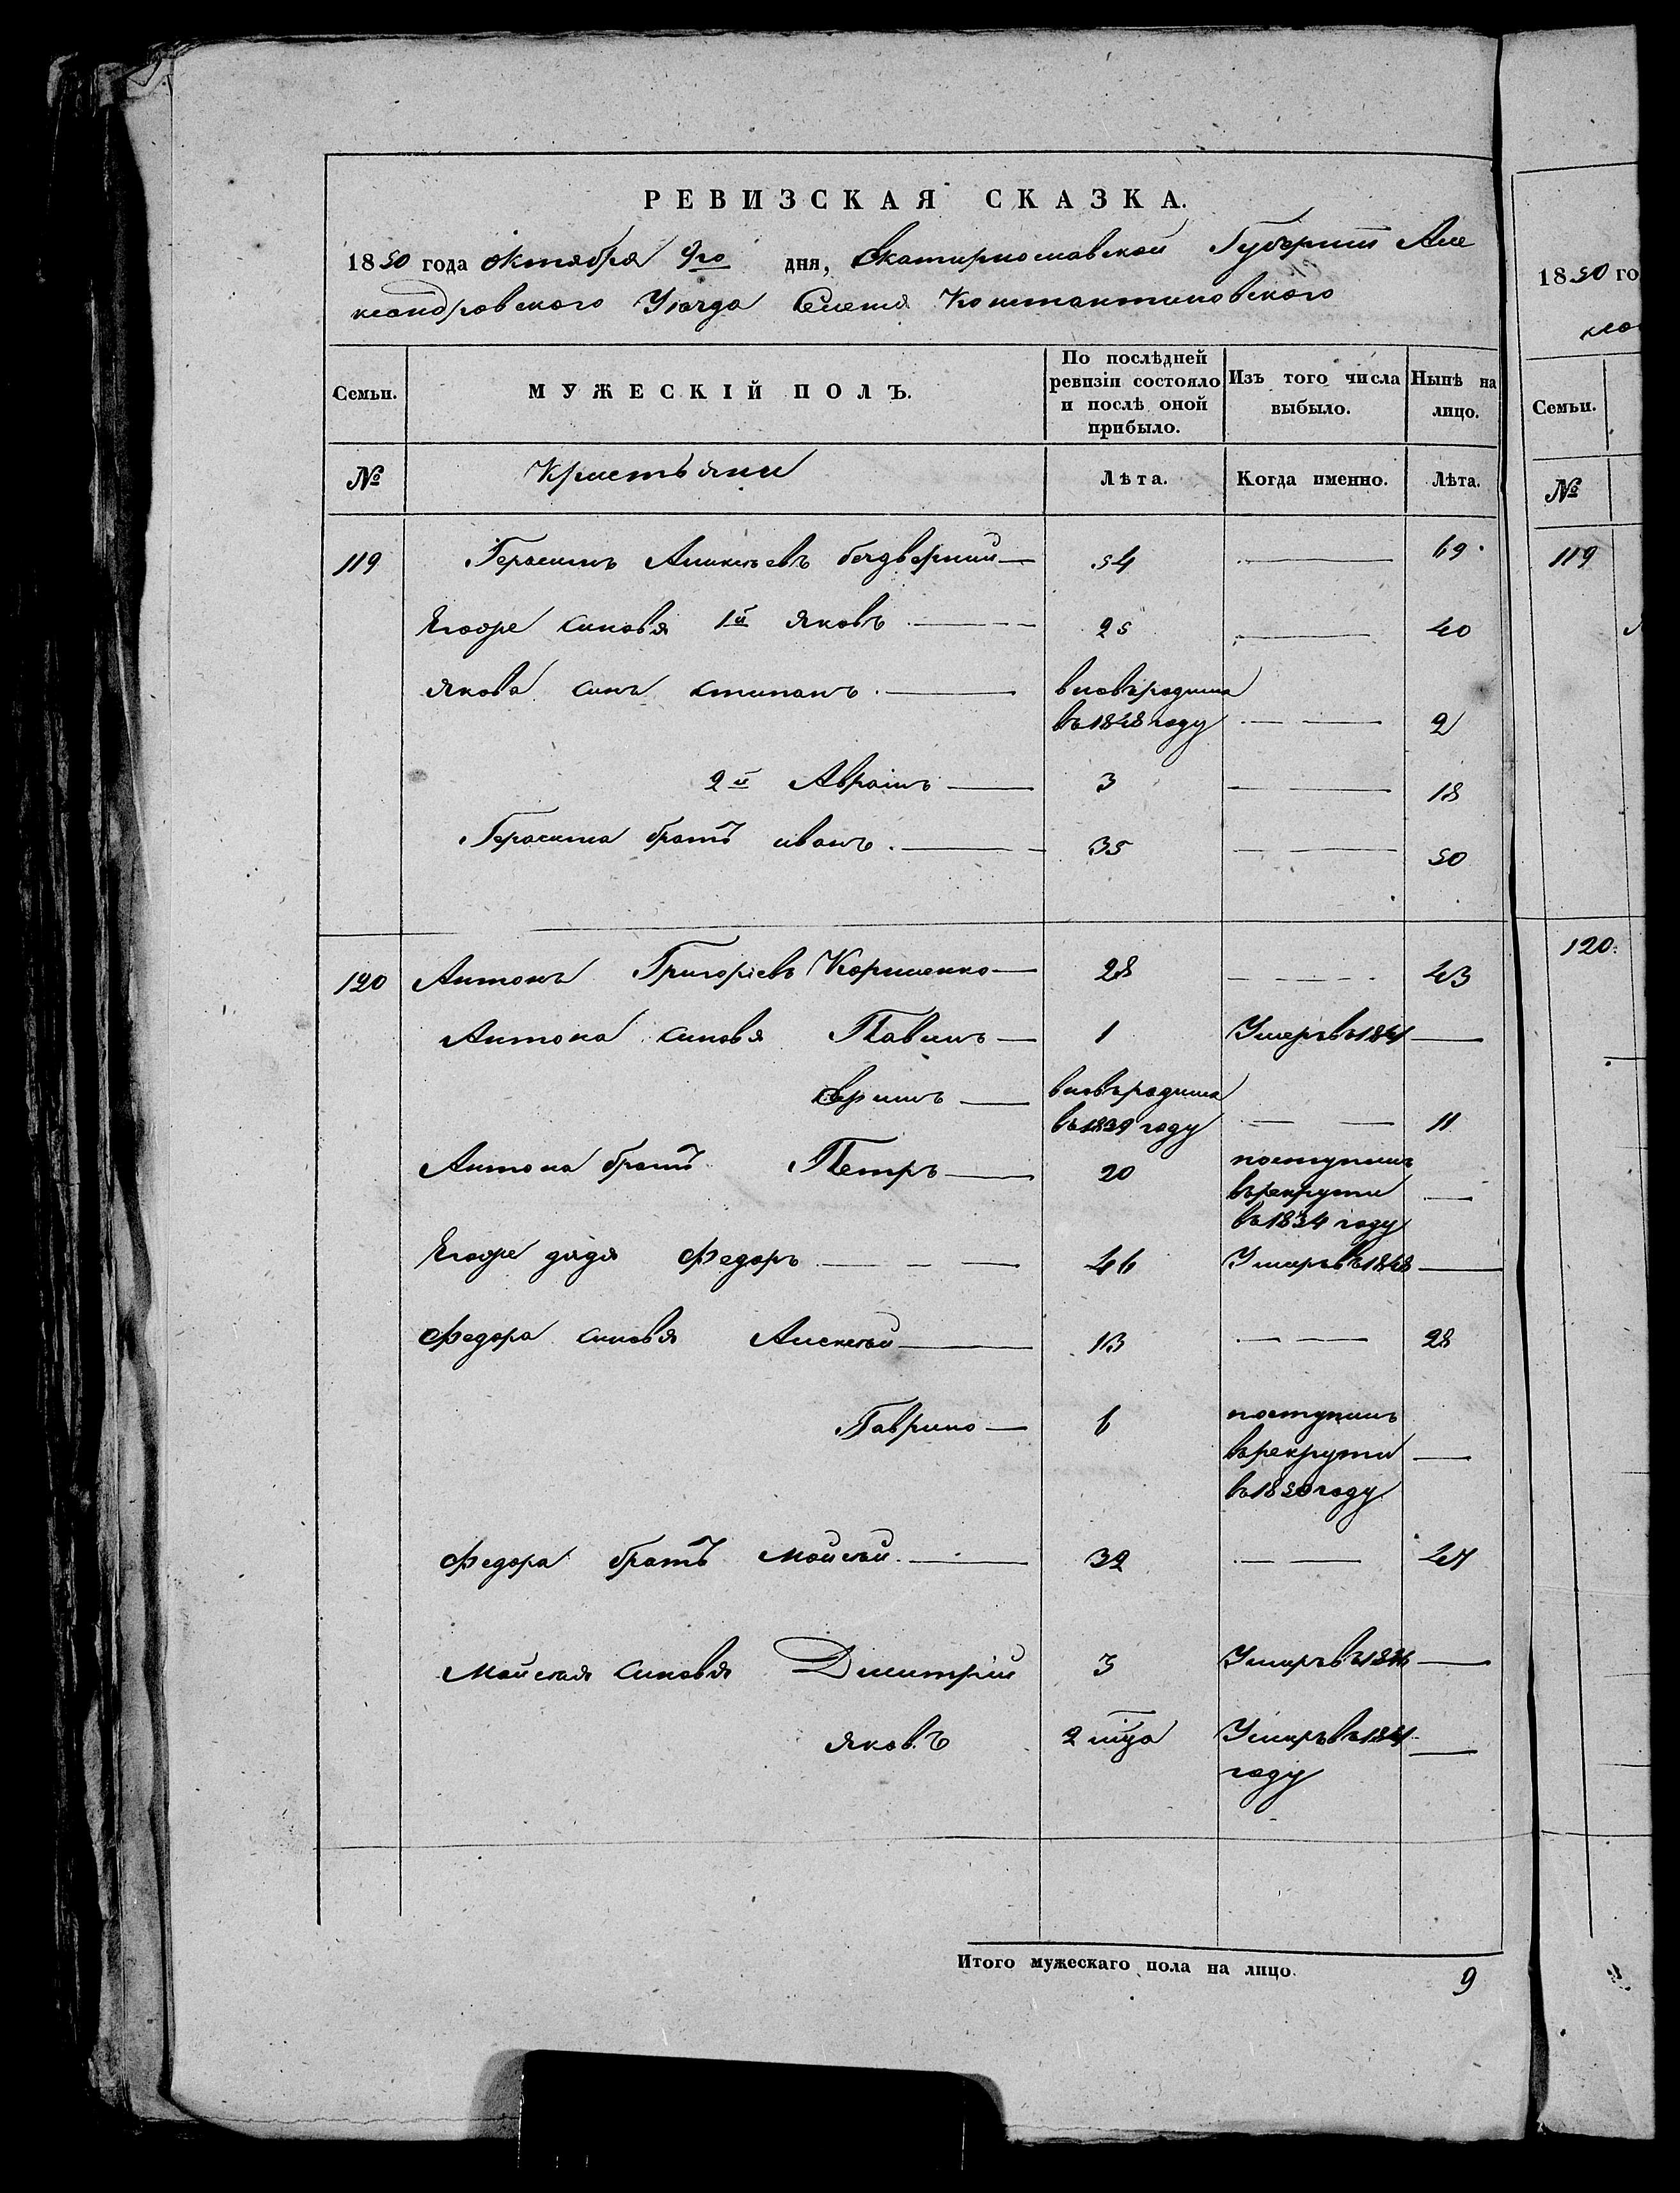 РЕВИЗСКАЯ СКАЗКА.
1850 года октября 9го дня, Екатиринославской Губернии Але
ксандровского Уѣзда Селеня Константиновского
Семьи. МУЖЕСКІЙ ПОЛЪ. По послѣдней ревизіи состояло и послѣ оной прибыло. Изъ того числа выбыло. Нынѣ на лицо.
№ Кристьяни Лѣта. Когда именно. Лѣта.
119 Герасимъ Аникѣевъ бездверний 54 69
Егооре синовя 1й яковъ 25 40
якова синъ стипанъ вновьродился
въ 1848 году 2
2й Аврамъ 3 18
Герасима братъ иванъ 35 50
120 Антонъ Григоріевъ Корниенко 28 43
Антона синовя Павилъ 1 Умеръ въ 1841
вновьродился
въ 1839 году 11
Антона братъ Петръ 20 поступилъ
върекрути
въ 1834 году
Егооре дядя Федоръ 46 Умеръ въ 1848
Федора синовя Алексѣй 13 28
Гаврило 6 поступилъ
врекрути
въ 1850 году
Федора братъ Мойсѣй 32 47
Мойсѣя синовя Дмитрій 3 Умеръ въ
яковъ 2 мца Умеръ въ 1841
году
Итого мужескаго пола на лицо. 9
1850 го
Семьи.
№
119
120